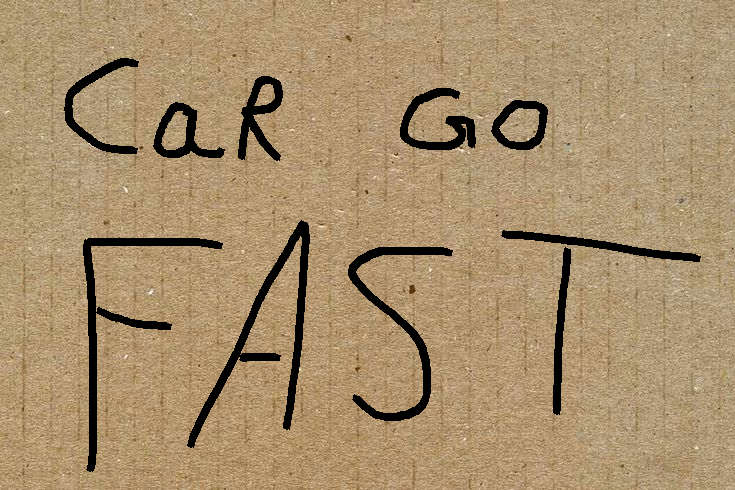 CaR GO
FAST